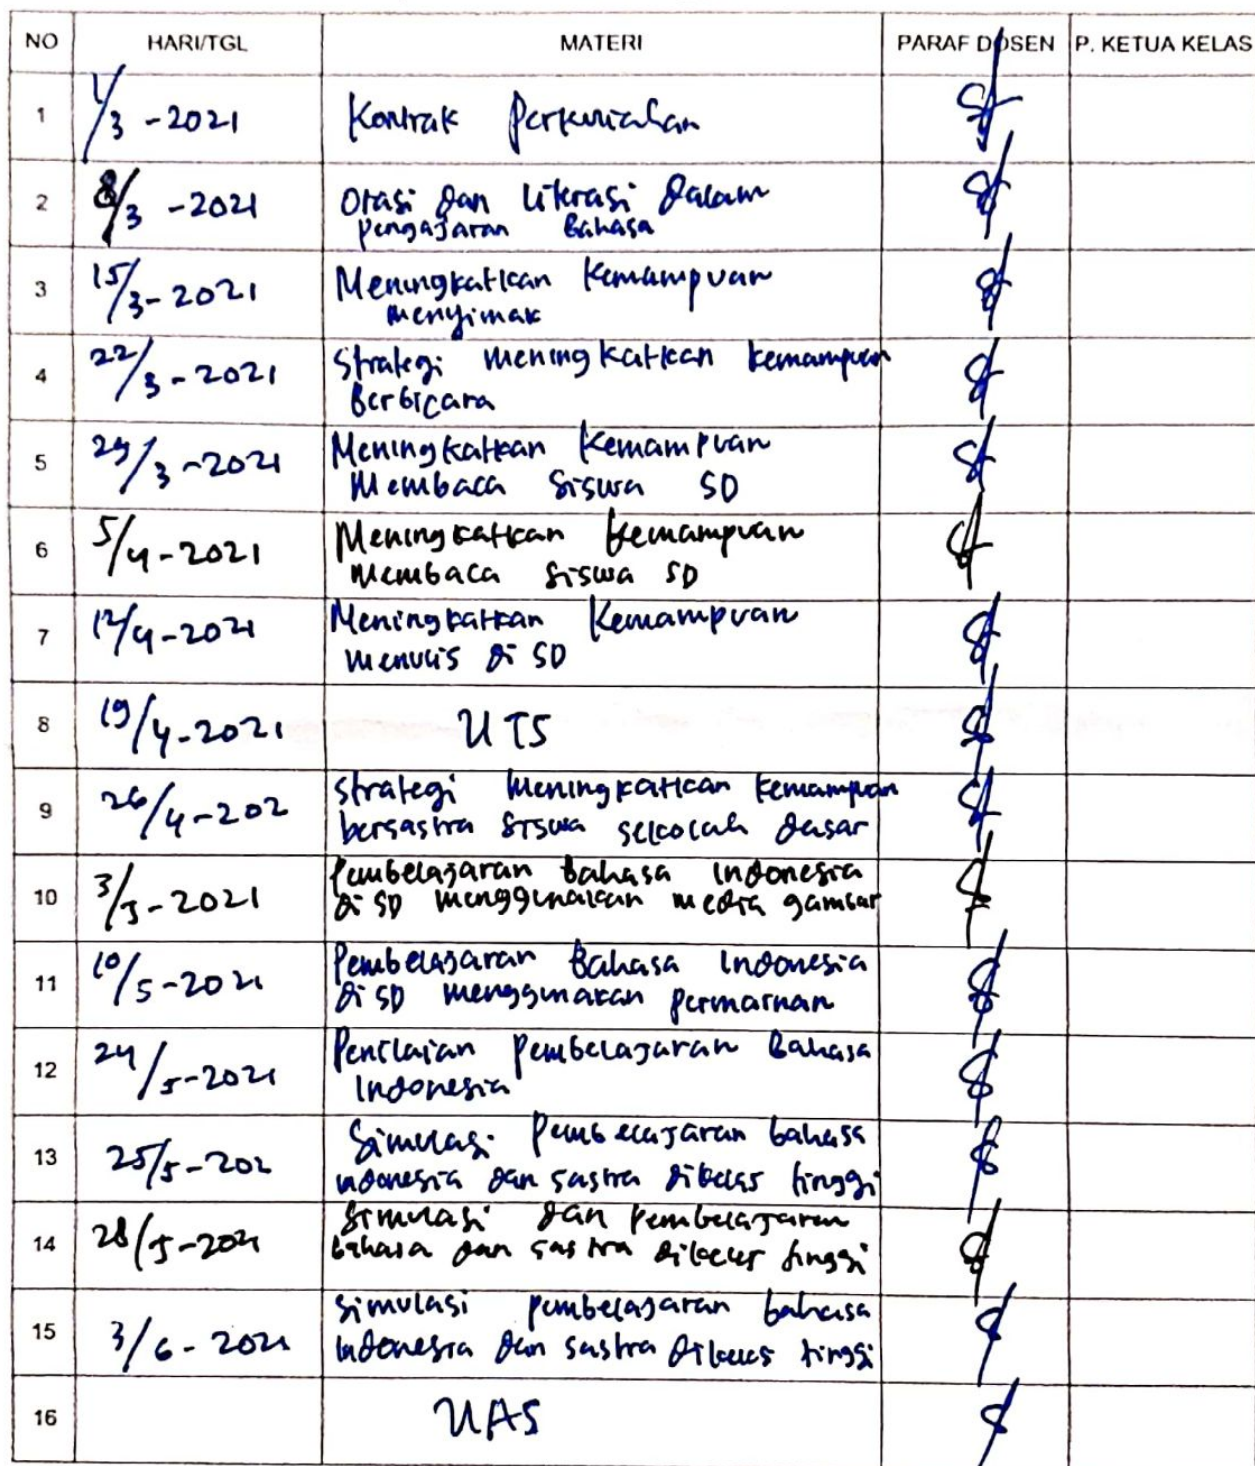 NO HARI/TGL MATERI PARAF DOSEN P. KETUA KELAS
1 1/3 - 2021 Kontrak Perkuliahan
2 8/3 - 2021 Orasi dan literasi dalam
pengajaran Bahasa
3 15/3 - 2021 Meningkatkan Kemampuan
menyimak
4 22/3 - 2021 Strategi meningkatkan kemampuan
Berbicara
5 29/3 - 2021 Meningkatkan Kemampuan
Membaca Siswa SD
6 5/4 - 2021 Meningkatkan Kemampuan
Membaca Siswa SD
7 12/4 - 2021 Meningkatkan Kemampuan
menulis di SD
8 19/4 - 2021 UTS
9 26/4 - 202 Strategi Meningkatkan kemampuan
bersastra siswa sekolah dasar
10 3/5 - 2021 Pembelajaran bahasa indonesia
di SD menggunakan media gambar
11 10/5 - 2021 Pembelajaran Bahasa Indonesia
di SD menggunakan permainan
12 24/5 - 2021 Penilaian pembelajaran Bahasa
Indonesia
13 25/5 - 202 Simulasi Pembelajaran bahasa
indonesia dan sastra dikelas tinggi
14 28/5 - 2021 Simulasi dan Pembelajaran
bahasa dan sastra dikelas tinggi
15 3/6 - 2021 Simulasi pembelajaran bahasa
indonesia dan sastra dikelas tinggi
16 UAS